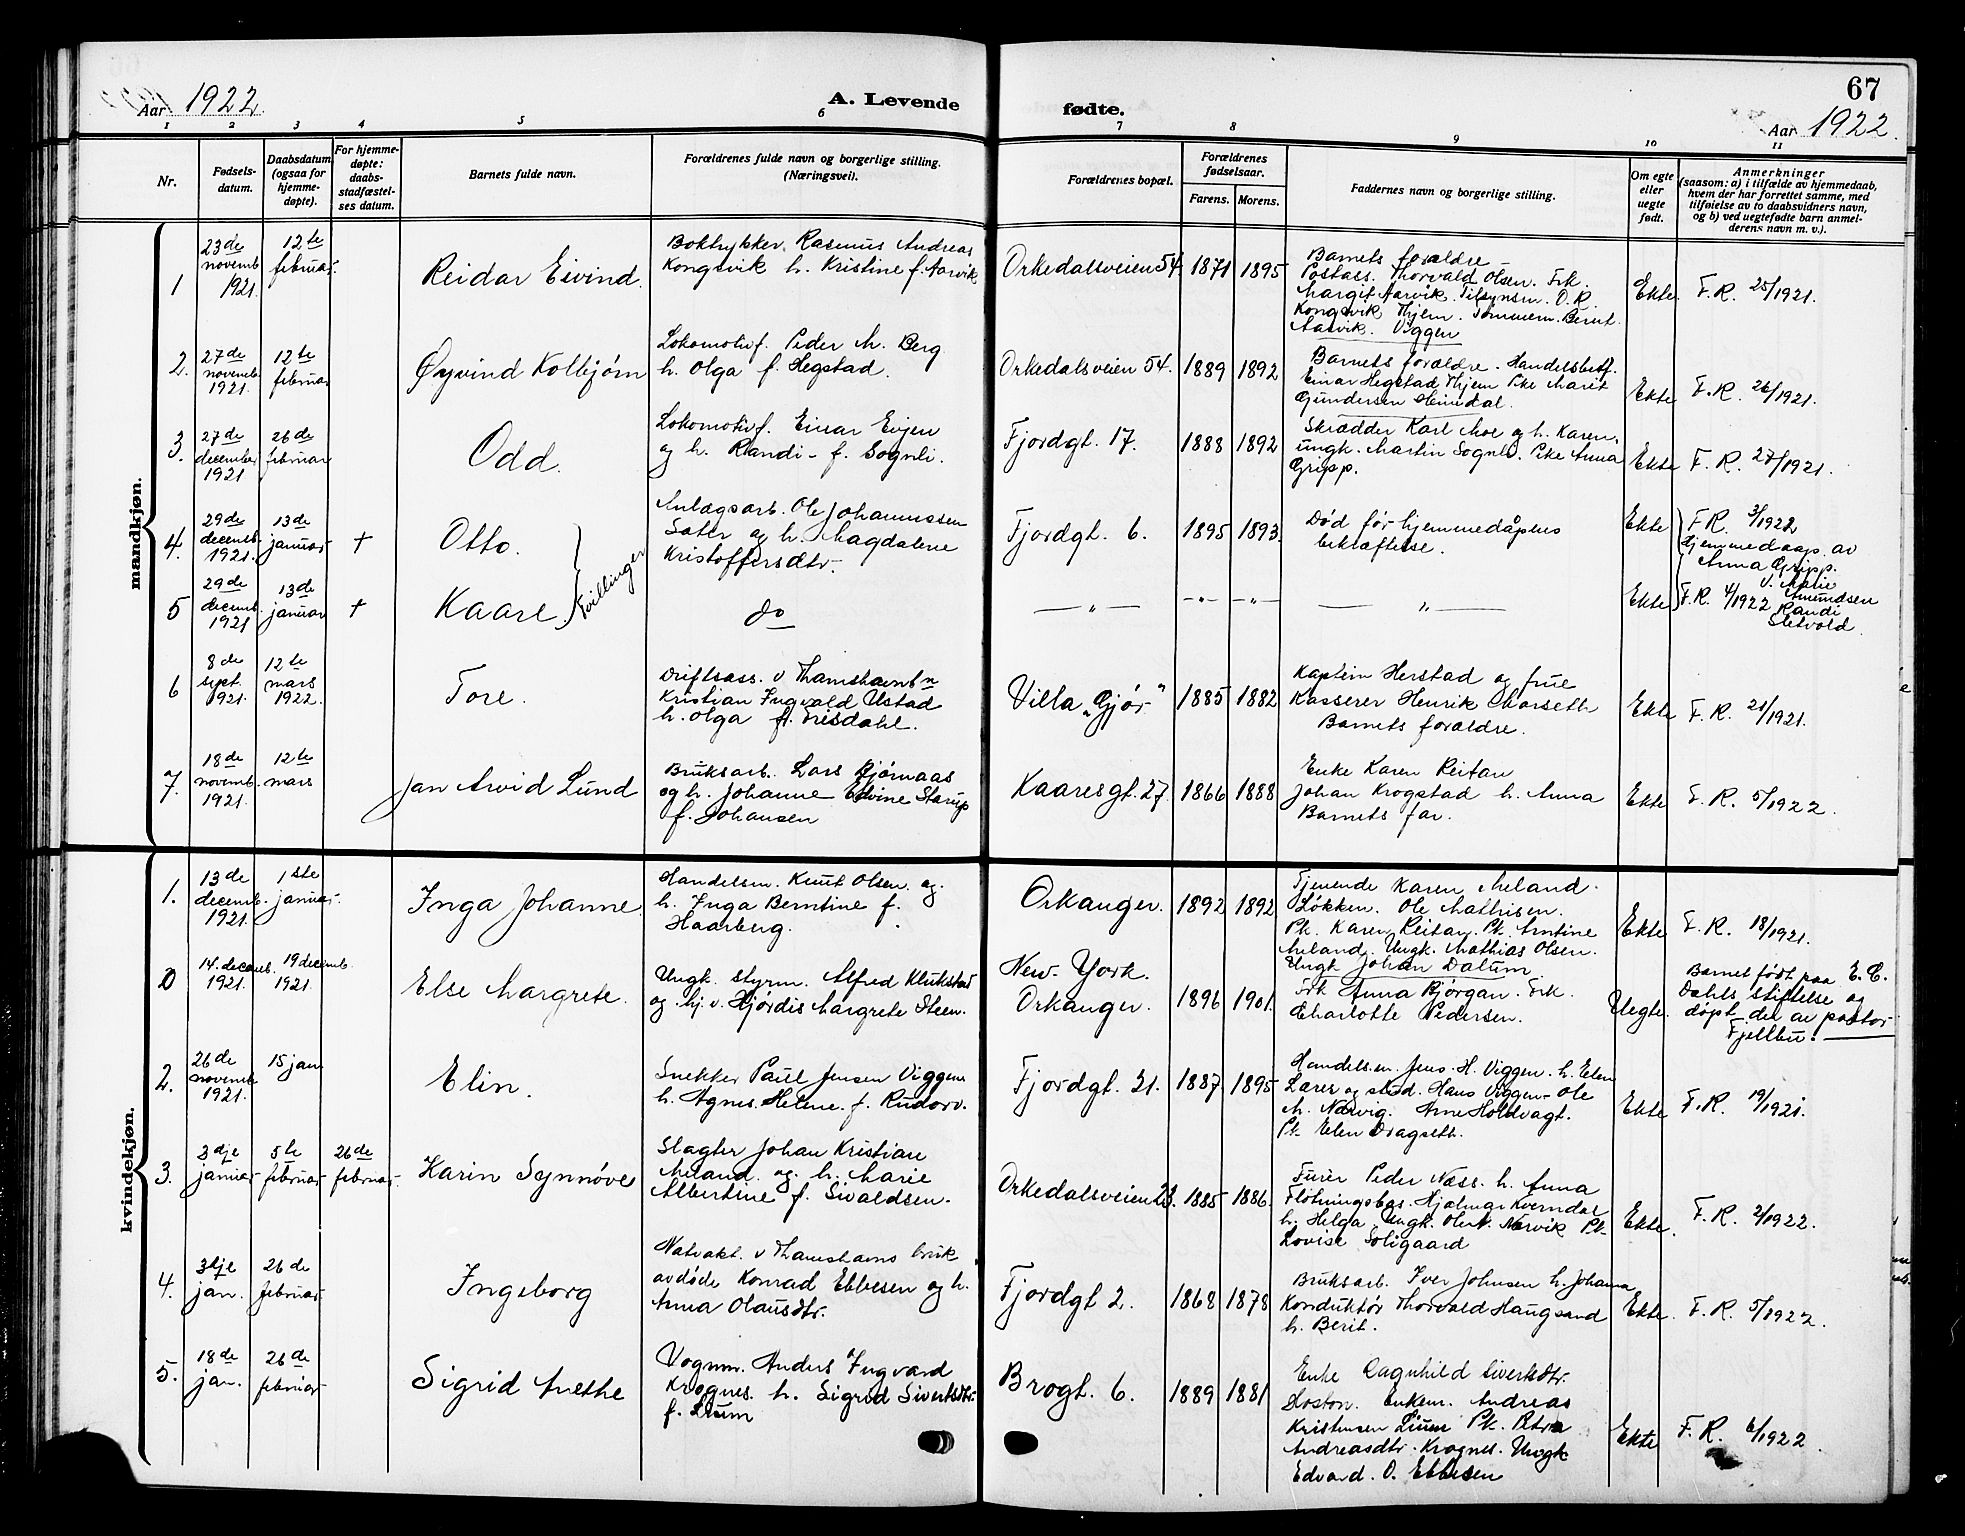 Aar 1922
A. Levende
fødte.
67
Aar 1922.
1 2 3 4 5 6 7 8 9 10 11
Nr.
Fødsels-
datum.
Daabsdatum
(ogsaa for
hjemme-
døpte).
For hjemme-
døpte:
daabs-
stadfæstel-
ses datum.
Barnets fulde navn.
Forældrenes fulde navn og borgerlige stilling.
(Næringsvei).
Forældrenes bopæl.
Forældrenes
fødselsaar.
Farens. Morens.
Faddernes navn og borgerlige stilling.
Om egte
eller
uegte
født.
Anmerkninger
(saasom: a) i tilfælde av hjemmedaab,
hvem der har forrettet samme, med
tilføielse av to daabsvidners navn,
og b) ved uegtefødte barn anmel-
derens navn m. v.).
mandkjøn.
1
23de
novemb.
1921.
12te
februar.
Reidar Eivind.
Boktrykker. Rasmus Andreas
Kongsvik h. Kristine f. Aarvik
Orkedalsveien 54. 1871 1895
Barnets forældre
Postass. Thorvald Olsen. Frk.
Margit Aarvik. Tilsynsm. O. R.
Kongsvik Thjem. Tømmerm. Bernt
Aarvik. Viggen
Ekte
F. R. 25/1921.
2.
27de
novemb.
1921.
12te
februar
Øyvind Kolbjørn
Lokomotivf. Peder M. Berg
h. Olga f. Hegstad.
Orkedalsveien 54. 1889 1892
Barnets forældre. Handelsbetj.
Einar Hegstad Thjem Pike Marit
Gundersen Heimdal.
Ekte
F. R. 26/1921.
3.
27de
december
1921
26de
februar
Odd.
Lokomotivf. Einar Evjen
og h. Randi f. Sognli.
Fjordgt. 17. 1888 1892
Skrædder Karl Moe og h. Karen.
ungk. Martin Sognli. Pike Anna
Gripp.
Ekte
F. R. 27/1921.
4.
29de
decemb.
1921.
13de
januar
†
Otto.
Anlægsarb. Ole Johannessen
Sæter og h. Magdalene
Kristoffersdtr.
Fjordgt. 6. 1895 1893.
Død før hjemmedåpens
bekræftelse.
Ekte
F R. 3/1922
Hjemmedaap. av
Anna Gripp.
v. Marie
Amundsen
Randi
Sletvold.
5
29de
decemb.
1921
13de
januar
†
Kaare.
Tvillinger
do
— „ — — „ — — „ — — „ —
Ekte
F. R. 4/1922
6
8de
sept.
1921.
12te
mars
1922.
Tore.
Driftsass. v Thamshavnbn
Kristian Ingvald Ustad
h. Olga f. Trisdahl.
Villa „Gjør“ 1885 1882
Kaptein Herstad og frue
Kasserer Henrik Morseth
Barnets forældre.
Ekte
F. R. 21/1921.
7.
18de
novemb.
1921.
12te
mars
Jan Arvid Lund
Bruksarb. Lars Bjørnaas
og h. Johanne Edvine Starup
f. Johansen
Kaaresgt. 27. 1866 1888
Enke Karen Reitan
Johan Krogstad h. Anna
Barnets far.
Ekte
F. R. 5/1922.
kvindekjøn.
1.
13de
decemb.
1921.
1ste
januar.
Inga Johanne
Handelsm. Knut Olsen og
h. Inga Berntine f.
Haarberg.
Orkanger. 1892 1892
Tjenende Karen Meland.
Løkken. Ole Mathisen.
Pk. Karen Reitan. Pk. Arntine
Meland. Ungk. Mathias Olsen.
Ungk Johan Dalum.
Ekte
F. R. 18/1921.
0
14. decemb.
1921.
19 decemb.
1921.
Else Margrete.
Ungk. styrm. Alfred Klukstad
og pj. v. Hjørdis Margrete Steen.
New-York.
Orkanger. 1896 1901.
Frk Anna Bjørgan. Frk.
Charlotte Pedersen.
Uegte.
Barnet født paa E. C.
Dahls stiftelse og
døpt der av pastor
Fjellbu.
2.
26de
novemb
1921.
15 jan
Elin.
Snekker Paul Jensen Viggen
h. Agnes Helene f. Rudorv.
Fjordgt. 21. 1887 1895
Handelsm. Jens H. Viggen. h. Elen
Lærer og stud. Hans Viggen. Ole
M. Nærvig. Arne Holtvagt.
Pk. Elen Dragseth.
Ekte
F. R. 19/1921.
3.
3dje
januar
5te
februar
26de
februar.
Karin Synnøve
Slagter Johan Kristian
Meland og h. Marie
Albertine f. Sivaldsen.
Orkedalsveien 23. 1885 1886.
Furer Peder Næss. h. Anna
Fløtningsbas. Hjalmar Kverndal
h. Helga Ungk. Ole N. Nervik Pk
Lovise Soligaard
Ekte.
F. R. 2/1922.
4.
3dje
jan.
26de
februar.
Ingeborg
Natvakt. v Thamshavns bruk
avdøde Konrad Ebbesen og h.
Anna Olausdtr.
Fjordgt 2. 1868 1878
Bruksarb. Iver Johnsen h. Johanna
Konduktør Thorvald Haugsand
h. Berit.
Ekte.
F. R. 5/1922.
5.
18de
jan.
26de
februar
Sigrid Anethe
Vognm. Anders Ingvard
Krognes. h. Sigrid Sivertsdtr.
f. Lium
Brogt. 6. 1889 1881
Enke Ragnhild Sivertsdtr.
Enkem. Andreas
Kristensen Lium Pk. Petra
Andreasdtr. Krognes. Ungk
Edvard O. Ebbesen
Ekte
F. R. 6/1922.